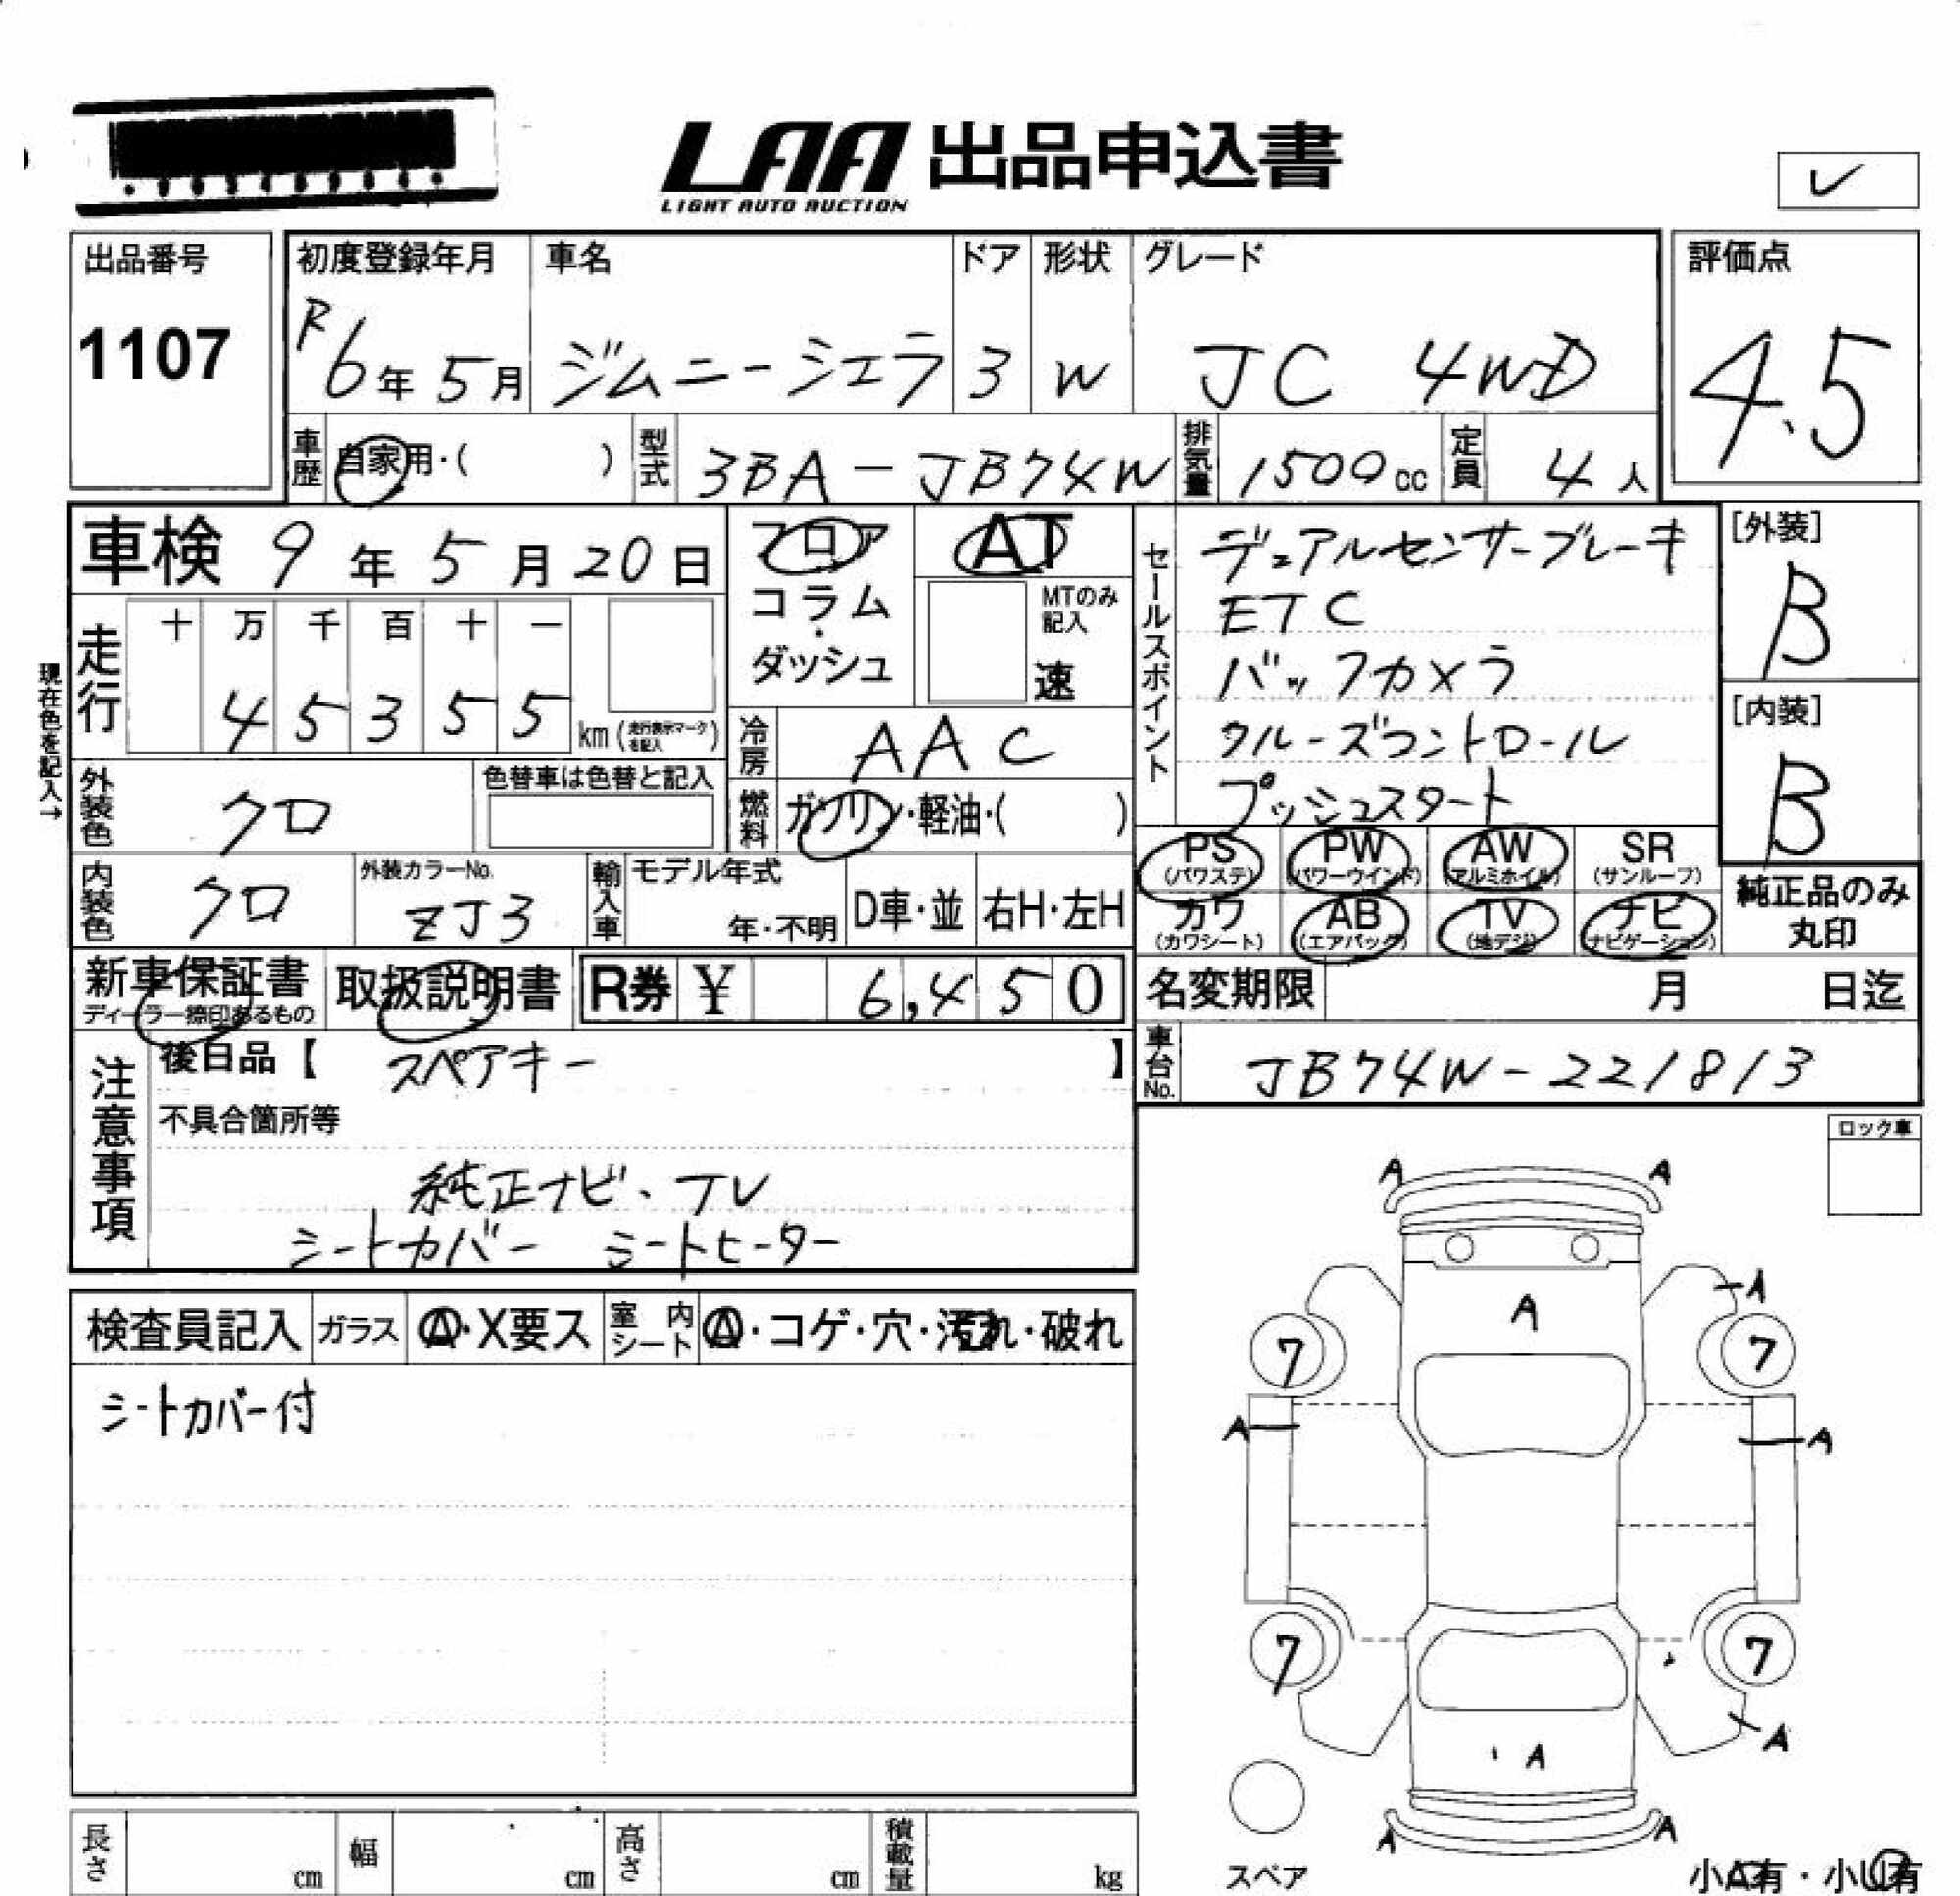 LAA 出品申込書
LIGHT AUTO AUCTION
出品番号
1107
初度登録年月
R6年5月
車名
ジムニーシエラ
ドア
3
形状
W
グレード
JC 4WD
評価点
4.5
車歴 自家用・( )
型式 3BA-JB74W
排気量 1500cc
定員 4人
車検 9年5月20日
フロア
コラム・
ダッシュ
AT
MTのみ記入
速
走行
十 万 千 百 十 一
4 5 3 5 5 km (走行表示マークを記入)
現在色を記入→
外装色 クロ
色替車は色替と記入
冷房 AAC
燃料 ガソリン・軽油・( )
内装色 クロ
外装カラーNo.
ZJ3
輸入車
モデル年式
年・不明
D車・並
右H・左H
セールスポイント
デュアルセンサーブレーキ
ETC
バックカメラ
クルーズコントロール
プッシュスタート
[外装]
B
[内装]
B
PS (パワステ)
PW (パワーウインド)
AW (アルミホイル)
SR (サンルーフ)
カワ (カワシート)
AB (エアバッグ)
TV (地デジ)
ナビ (ナビゲーション)
純正品のみ
丸印
新車保証書
ディーラー捺印あるもの
取扱説明書
R券 ¥ 6,450
名変期限 月 日迄
車台No. JB74W-221813
注意事項
後日品【 スペアキー 】
不具合箇所等
純正ナビ、TV
シートカバー シートヒーター
ロック車
検査員記入
ガラス A・X要ス
室内シート A・コゲ・穴・汚れ・破れ
シートカバー付
A A
A
A
7 7
A A
7 7
A
A
A A
スペア
小A有・小U有
長さ cm
幅 cm
高さ cm
積載量 kg